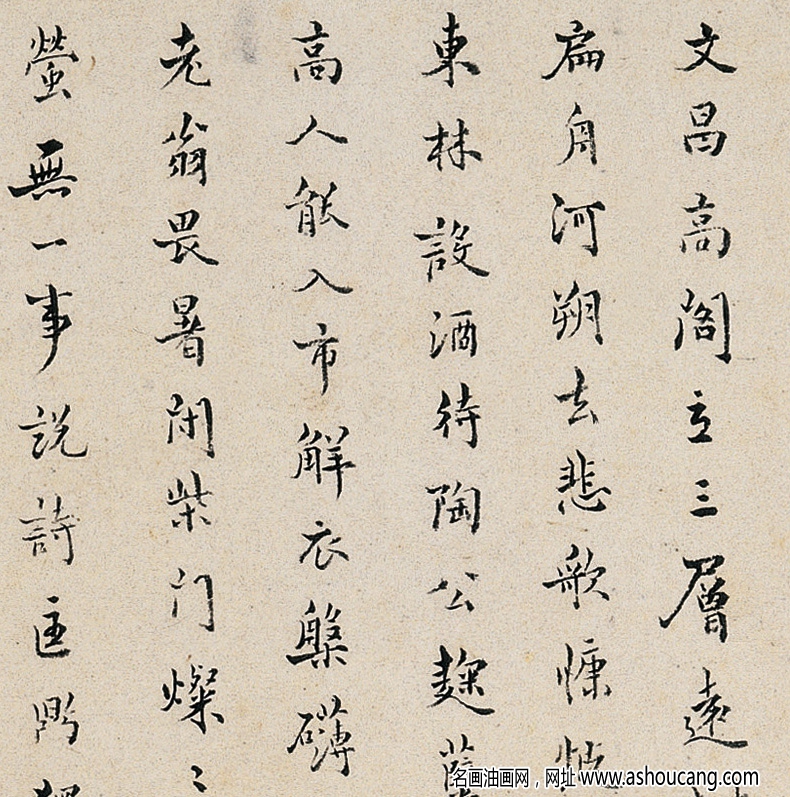 文昌高閣立三層遠
扁舟河朔去悲歌慷慨
東林設酒待陶公麴
高人能入市解衣槃礴
老翁畏暑閉柴門燦〻
螢無一事說詩匡鼎
名画油画网，网址 www.ashoucang.com